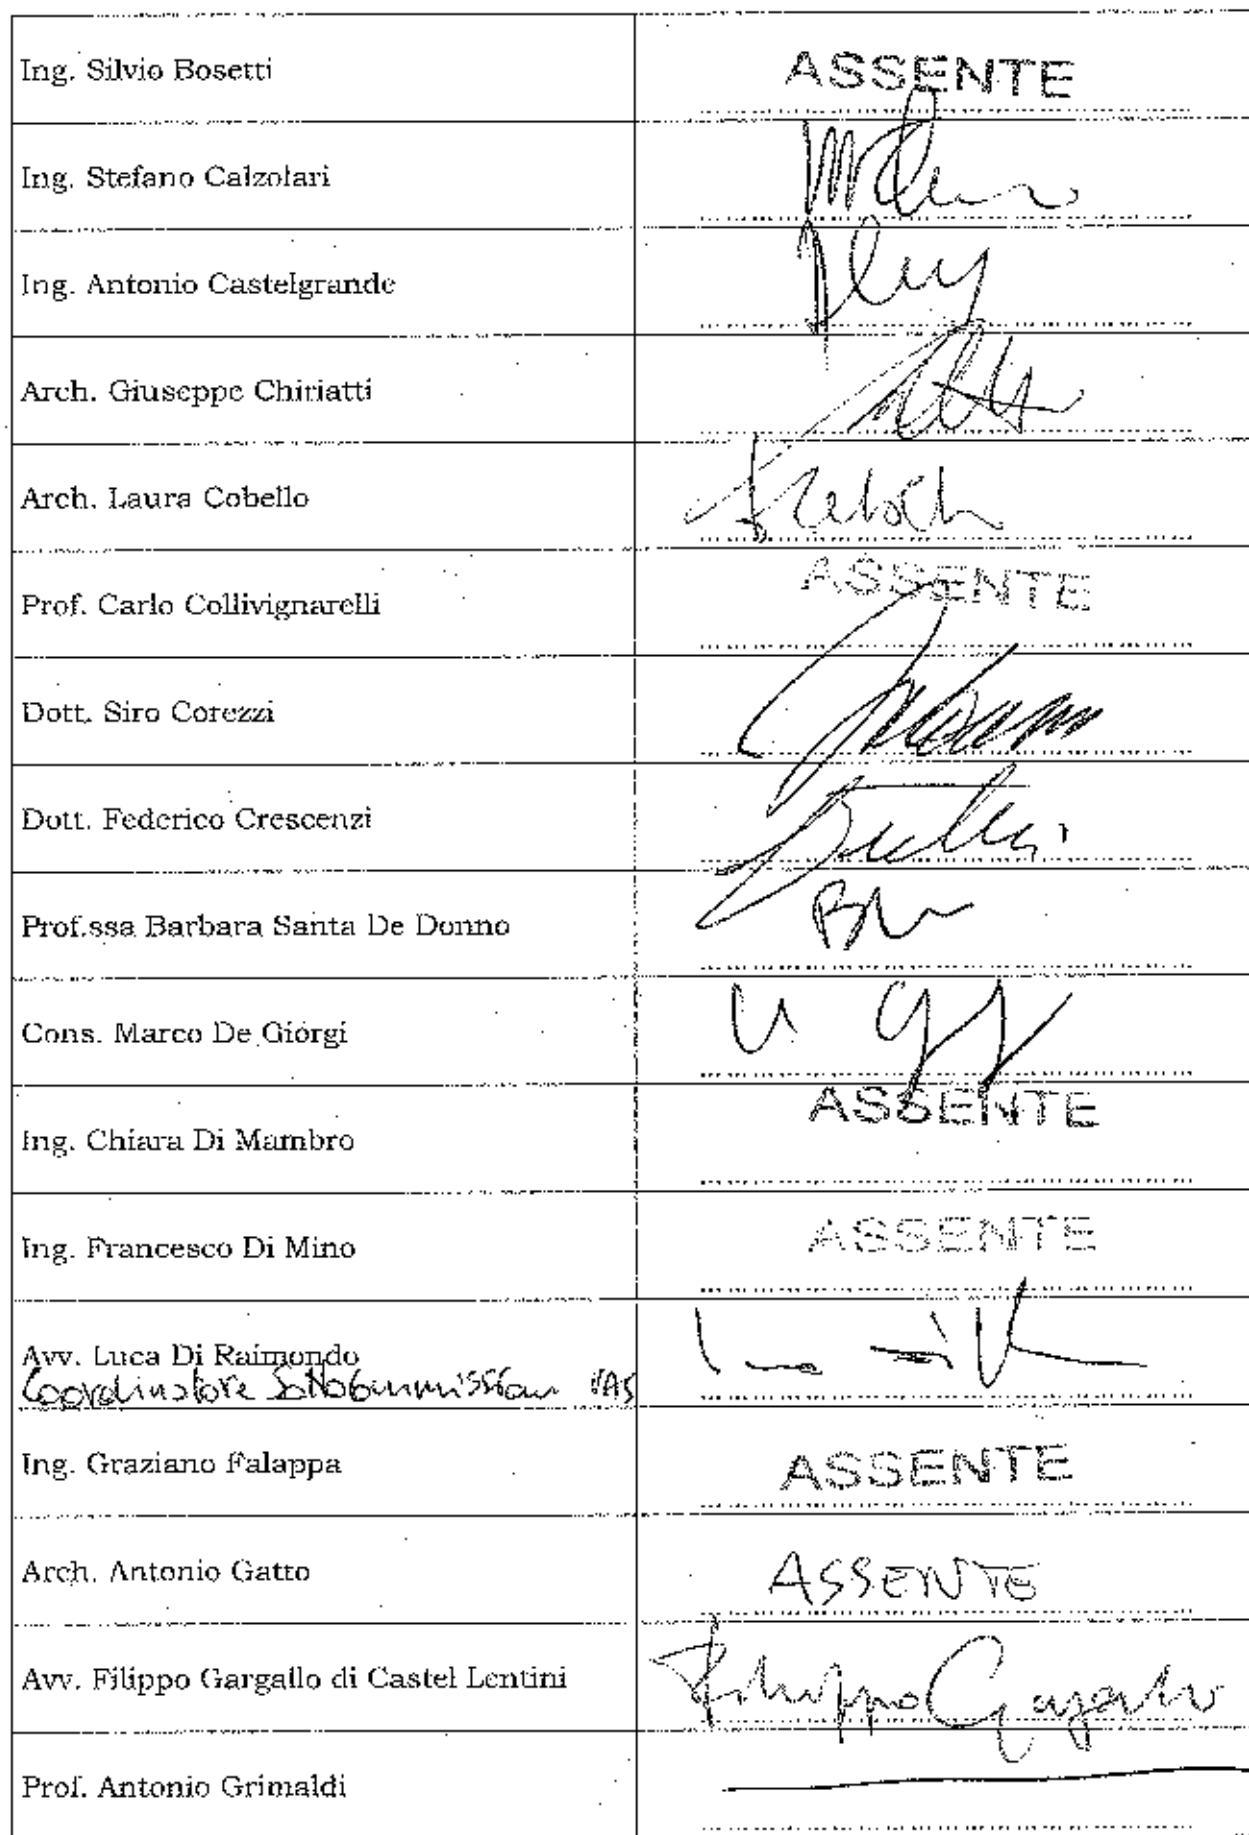 Ing. Silvio Bosetti
ASSENTE
Ing. Stefano Calzolari
Ing. Antonio Castelgrande
Arch. Giuseppe Chiriatti
Arch. Laura Cobello
Prof. Carlo Collivignarelli
ASSENTE
Dott. Siro Corezzi
Dott. Federico Crescenzi
Prof.ssa Barbara Santa De Donno
Cons. Marco De Giorgi
Ing. Chiara Di Mambro
ASSENTE
Ing. Francesco Di Mino
ASSENTE
Avv. Luca Di Raimondo
Coordinatore Sottocommissione VAS
Ing. Graziano Falappa
ASSENTE
Arch. Antonio Gatto
ASSENTE
Avv. Filippo Gargallo di Castel Lentini
Filippo Gargallo
Prof. Antonio Grimaldi